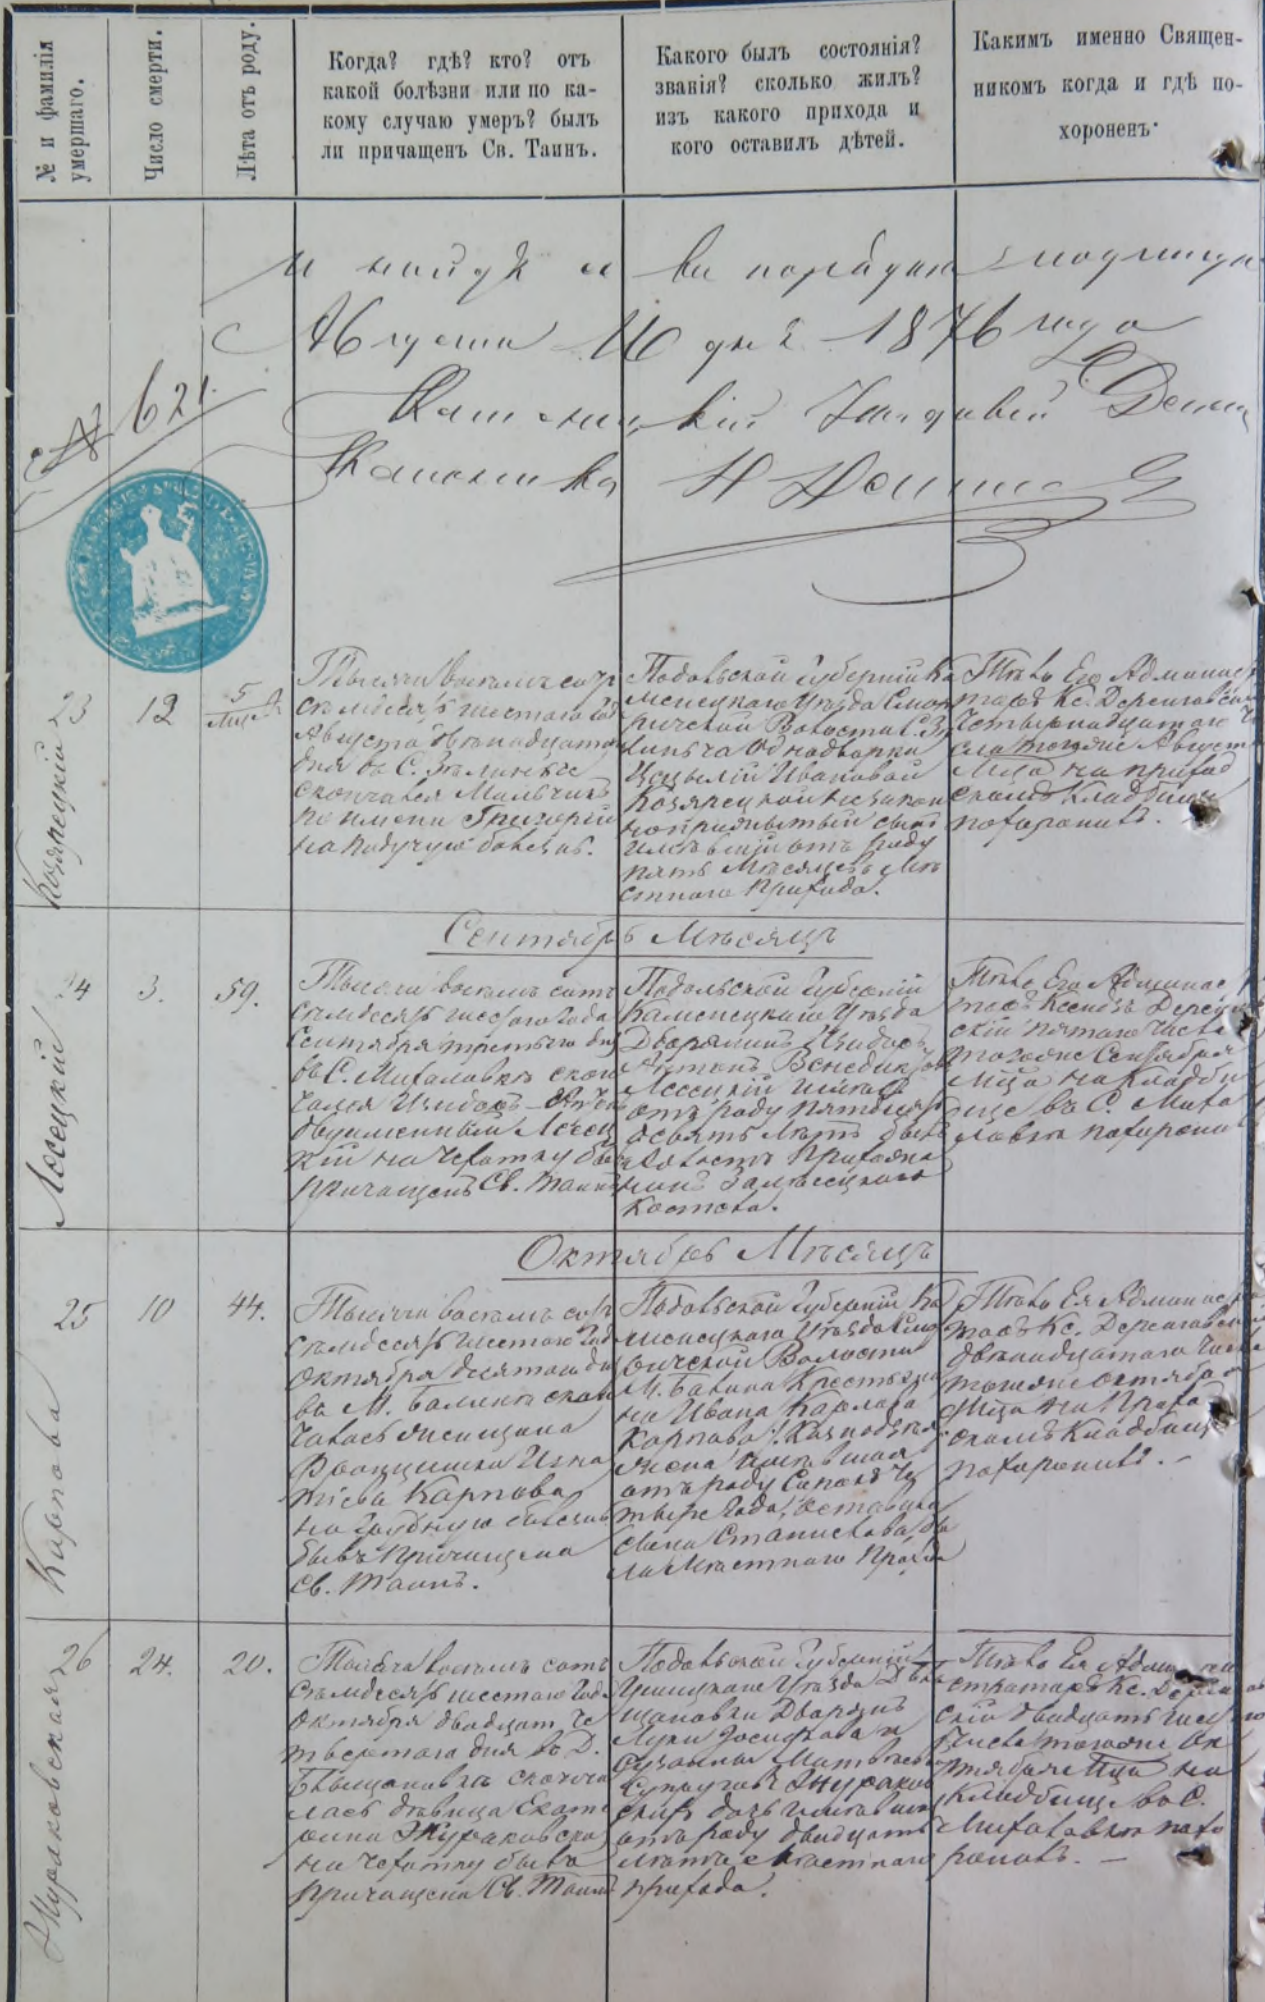 № и фамилія умершаго.
Число смерти.
Лѣта отъ роду.
Когда? гдѣ? кто? отъ
какой болѣзни или по ка-
кому случаю умеръ? былъ
ли причащенъ Св. Таинъ.
Какого былъ состоянія?
званія? сколько жилъ?
изъ какого прихода и
кого оставилъ дѣтей.
Какимъ именно Священ-
никомъ когда и гдѣ по-
хороненъ.
Августа 16 дня 1876 года
№ 621.
23
Козярецкій
12
5
Тысяча восемъ сотъ
семдесятъ шестаго Год
Августа двѣнадцатаго
дня въ С. Залинѣе
скончался Мальчикъ
по имени Григорій
на падучую болезнь.
Подольской Губерніи Ка
менецкаго Уѣзда Смот
ричской Волости С. За
Однодворки
Цецыліи Ивановой
Козярецкой незакон
ноприжытый сынъ
имѣвшій отъ роду
пять Мѣсяцевъ Мѣ
стнаго Прихода.
Тѣло Его Админист
раторъ Кс. Деренговскій
Четырнадцатаго Чи
сла тогоже Август
Мца на приход
скомъ Кладбище
похоронилъ.
Сентябрь Мѣсяцъ
24
Лесецкій
3.
59.
Тысяча восемъ сотъ
семдесятъ шестого Года
Сентября третьяго дня
въ С. Михаловкѣ скон
чался Изидоръ-Антонъ
двуименный Лесец
кій на Чехотку бывъ
причащенъ Св. Таинъ
Подольской Губерніи
Каменецкаго Уѣзда
Дворянинъ Изидоръ
Антонъ Бенедиктовъ
Лесецкій имѣвшій
отъ роду пятдесятъ
девять Лѣтъ бывъ
Прихожа
нинъ
Костела.
Тѣло Его Админис
торъ Ксендзъ Деренгов
скій пятаго числа
тогоже Сентября
Мца на Кладби
ще въ С. Миха
ловкѣ похоронилъ
Октябрь Мѣсяцъ
25
Карпова
10
44.
Тысяча восемъ сотъ
семдесятъ шестаго Год
Октября десятаго дня
въ М. Балинѣ скон
чалась женщина
Францишка Игна
тіева Карпова
на грудную болезнь
бывъ Причащена
Св. Таинъ.
Подольской Губерніи Ка
менецкаго Уѣзда Смо
тричской Волости
М. Балина Крестьяни
на Ивана Карлова
Карпова
жена имѣвшая
отъ роду Сорокъ Че
тыре Года, оставила
сына Станислава, бы
ла Мѣстнаго Прихода
Тѣло Ея Админис
торъ Кс. Деренговскій
двѣнадцатаго Числа
тогоже Октября
Мца на Прихо
скомъ Кладбище
похоронилъ. -
26
Жураковская
24.
20.
Тысяча восемъ сотъ
семдесятъ шестаго Года
Октября двадцать Че
твертаго дня въ Д.
сконча
лась дѣвица Екате
рина Жураковская
на Чехотку бывъ
причащена Св. Таинъ
Подольской Губерніи
Ушицкаго Уѣзда
Дворянъ
Луки Іосифова и
Сузанны Матвѣевой
Супруговъ Жураков
скихъ дочь имѣвшая
отъ роду двадцать
лѣтъ мѣстнаго
прихода.
Тѣло Ея Админи
страторъ Кс. Деренгов
скій двадцать шестаго
Числа тогоже Ок
тября Мца на
Кладбище въ С.
Михаловкѣ похо
ронилъ. -